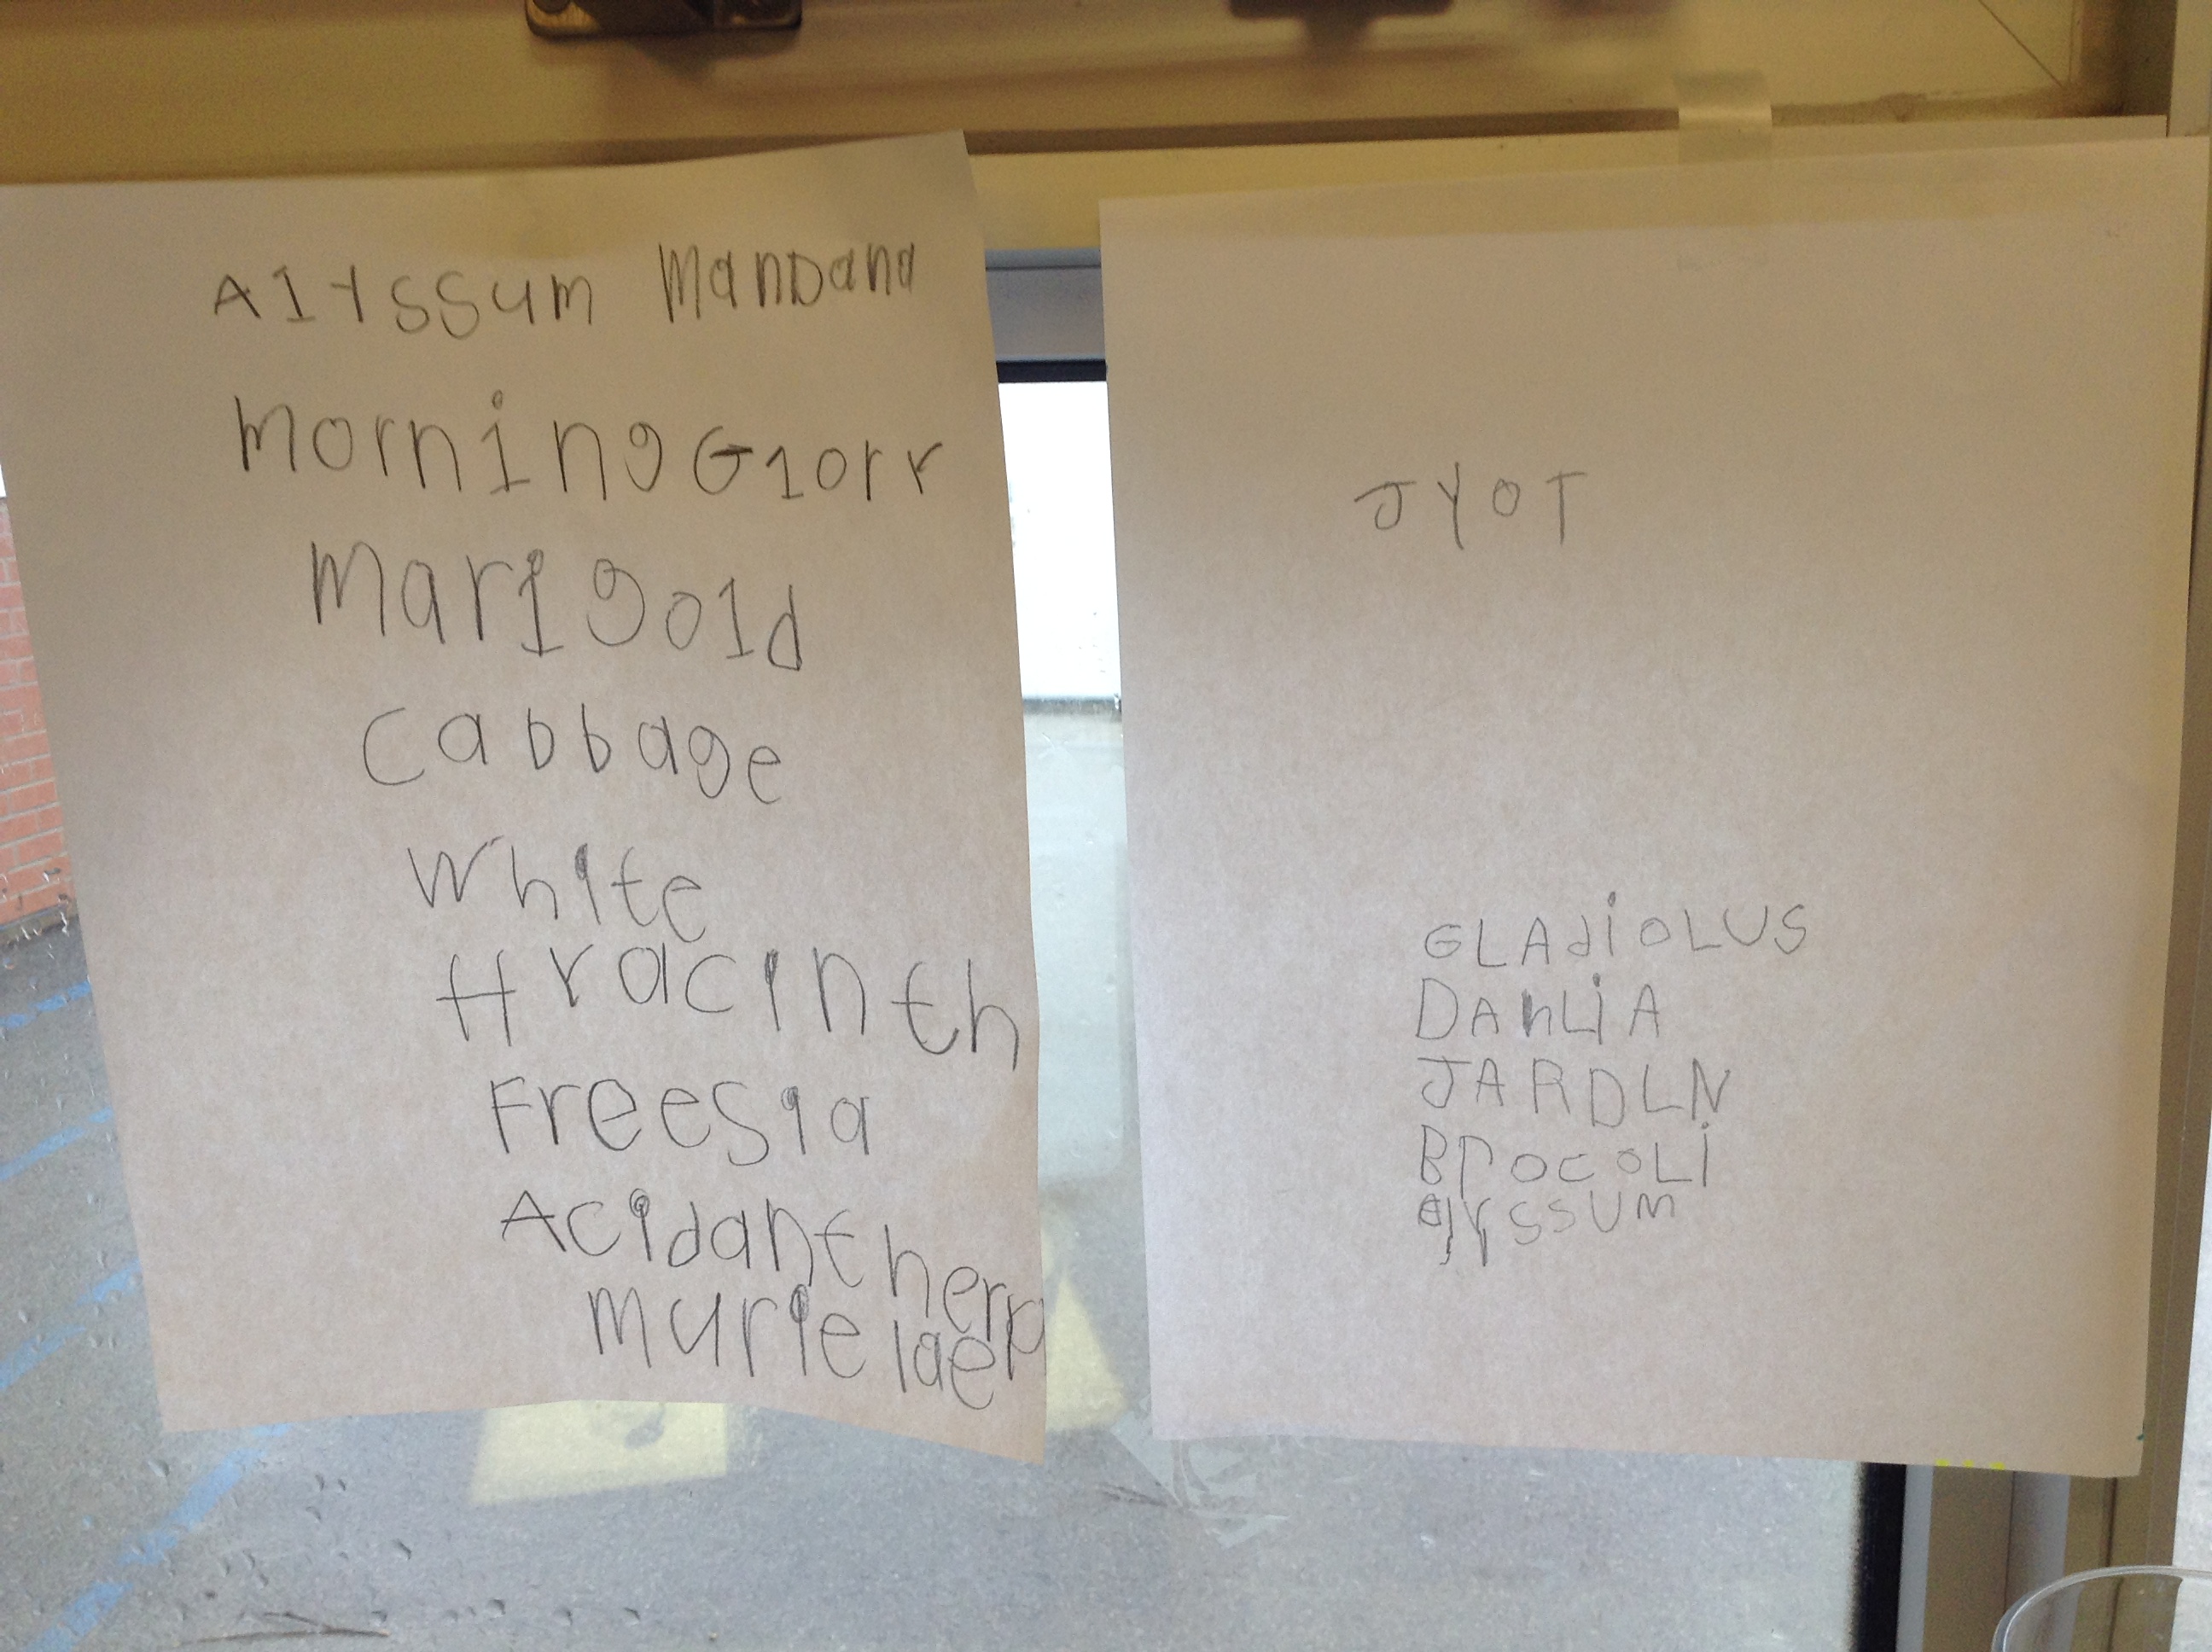 Alyssum ManDana
Morning Glory
Marigold
Cabbage
White
Hyacinth
Freesia
Acidanthera
murielae
JYOT
GLAdiOLUS
DAhLiA
JARDLN
BrocoLi
Alyssum